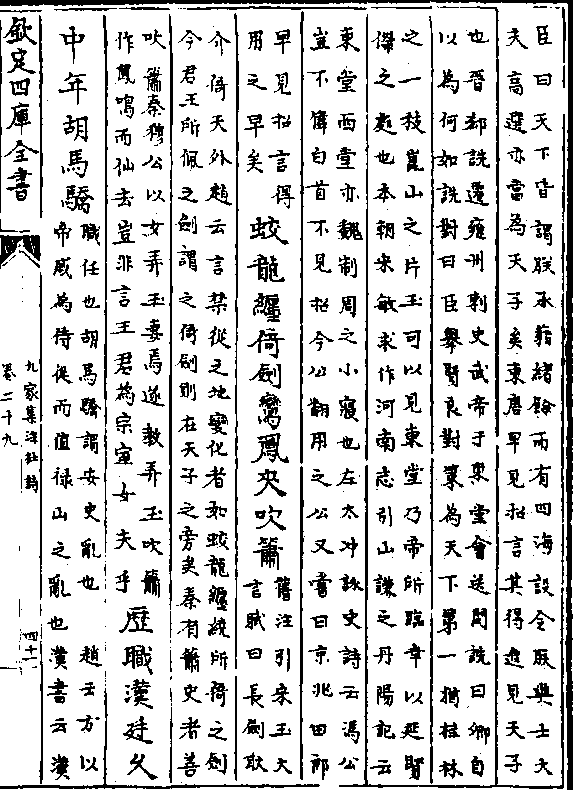 臣曰天下皆謂朕承藉緒餘而有四海設令朕與士大
夫高選亦當為天子矣東唐早見招言其得進見天子
也晉郤詵遷雍州刺史武帝于東堂會送問詵曰卿自
以為何如詵對曰臣舉賢良對策為天下第一猶桂林
之一枝崑山之片玉可以見東堂乃帝所臨幸以延賢
傑之處也本朝宋敏求作河南志引山謙之丹陽記云
東堂西堂亦魏制周之小寢也左太冲詠史詩云馮公
豈不偉白首不見招今公翻用之公又嘗曰京兆田郎
早見招言得
用之早矣
蛟龍纏倚劍鸞鳳夾吹簫
舊注引宋玉大
言賦曰長劍耿
介倚天外趙云言禁從之地變化者如蛟龍纏繞所倚之劍
今君王所佩之劍謂之倚劍則在天子之旁矣秦有簫史者善
吹簫秦穆公以女弄玉妻焉遂教弄玉吹簫
作鳳鳴而仙去豈非言王君為宗室女夫乎
歴職漢廷久
中年胡馬驕
職任也胡馬驕謂安史亂也 趙云方以
帝戚為侍從而值禄山之亂也漢書云漢
欽定四庫全書
九家集注杜詩
卷二十九
四十一